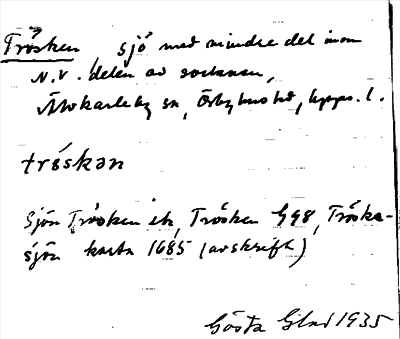 Trösken sjö med mindre del inom
N.V. delen av socknen,
Älvkarleby sn, Örbyhus hd, Upps. l.
tröskan
Sjön Trösken ek, Trösken G98, Tröska-
sjön karta 1685 (avskrift)
Gösta Glad 1935